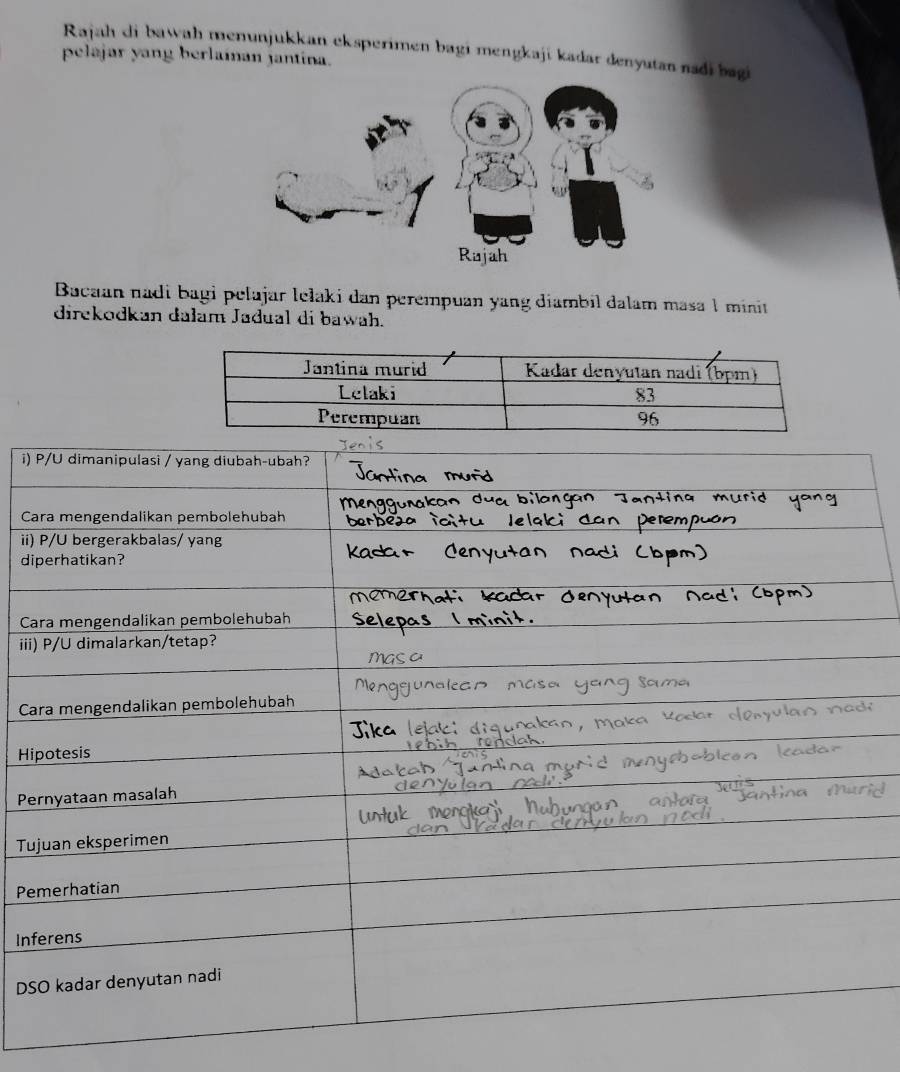 Rajah di bawah menunjukkan eksperimen bagi mengkaji kadar denyutan nadi bagi
pelajar yang berlainan jantina.
Rajah
Bacaan nadi bagi pelajar lelaki dan perempuan yang diambil dalam masa 1 minit
direkodkan dalam Jadual di bawah.
Jantina murid Kadar denyutan nadi (bpm)
Lelaki 83
Perempuan 96
Jenis
i) P/U dimanipulasi / yang diubah-ubah? ^ Jantina murid
menggunakan dua bilangan Jantina murid yang
Cara mengendalikan pembolehubah berbeza iaitu lelaki dan perempuan
ii) P/U bergerakbalas/ yang
diperhatikan? Kadar denyutan nadi (bpm)
memerhati kadar denyutan nadi (bpm)
Cara mengendalikan pembolehubah Selepas 1 minit.
iii) P/U dimalarkan/tetap?
masa
Cara mengendalikan pembolehubah Menggunakan masa yang sama
Jika lelaki digunakan, maka kadar denyutan nadi
Hipotesis lebih rendah.
Jenis
Adakah ^ Jantina murid menyebabkan kadar
Pernyataan masalah denyutan nadi?
Jenis
Untuk mengkaji hubungan antara Jantina murid
Tujuan eksperimen dan kadar denyutan nadi.
Pemerhatian
Inferens
DSO kadar denyutan nadi